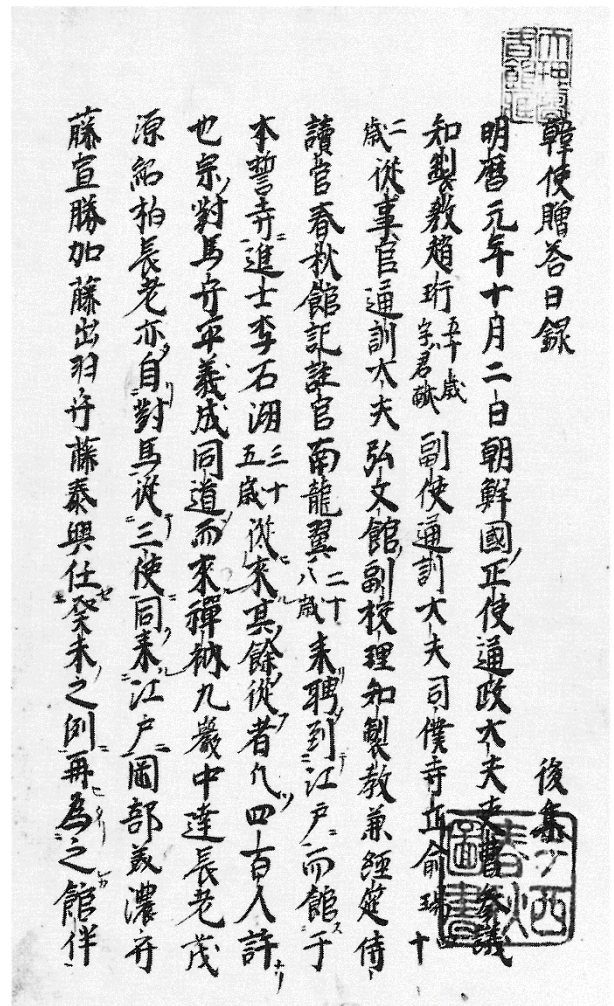 韓使贈答日録 後集
明暦元年十月二日朝鮮國正使通政大夫吏曹参議
知製教趙珩五十歳字君献副使通訓大夫司僕寺正俞瑒十
二歳從事官通訓大夫弘文館副校理知製教兼經筵侍
讀官春秋館記註官南龍翼二十八歳来聘到江戸而館于
本誓寺進士李石湖三十五歳從来其餘從者凡四百人許
也宗對馬守平義成同道而来禪衲九巖中達長老茂
源紹柏長老亦自對馬從三使同来江戸岡部美濃守
藤宣勝加藤出羽守藤泰興任癸未之例再為之館伴